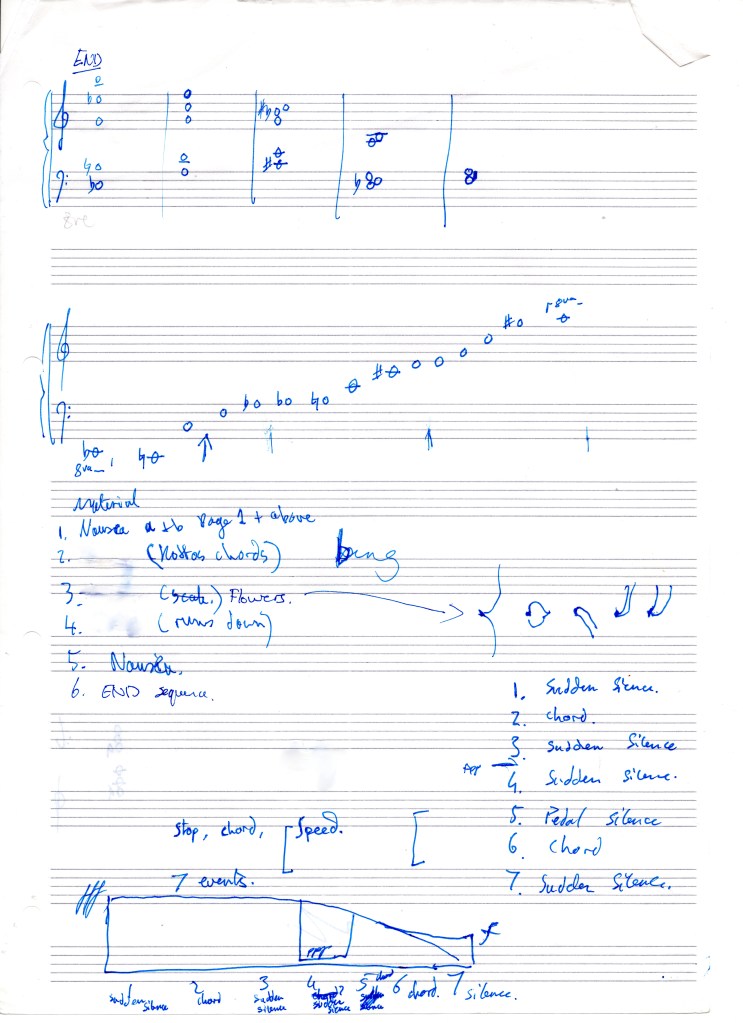 END
8ve
8va
8va
Material
1. Nausea a + b Page 1 + above
2. (Kostas chords) bang
3. (scale.) Flowers.
4. (runs down)
5. Nausea.
6. END sequence.
1. Sudden Sience.
2. chord.
3. Sudden Silence
ppp
4. Sudden Silence.
5. Pedal silence
6. Chord
7. Sudden Silence.
Stop, chord, [Speed.
7 events.
fff
f
ppp
1 sudden silence
2 chord
3 sudden silence
4 sudden silence
5 chord
6 chord.
7 silence.